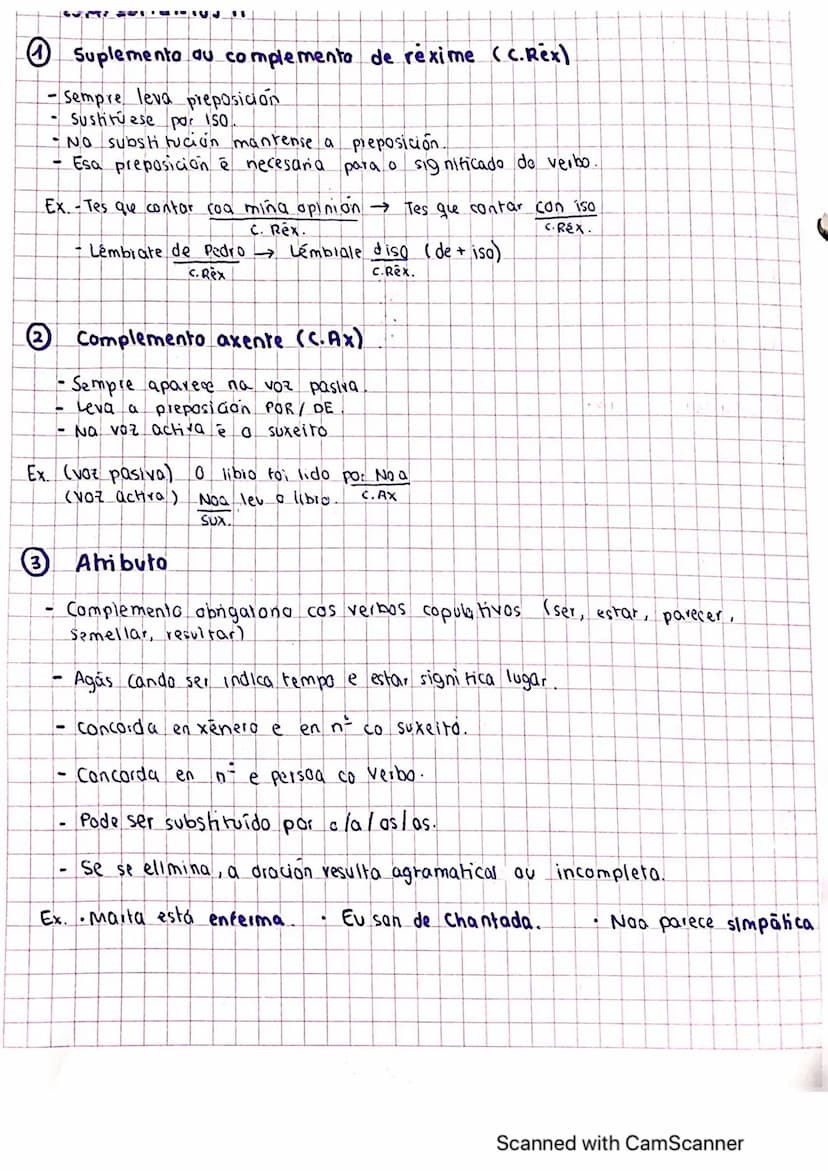 ① Suplemento ou complemento de réxime (C.Réx)
- Sempre leva preposición
- Sustitúese por ISO.
- Na substitución mantense a preposición.
- Esa preposición é necesaria para o significado do verbo.
Ex. - Tes que contar coa miña opinión → Tes que contar con iso
C. Réx. C.Réx.
- Lémbrate de Pedro → Lémbrate diso (de + iso)
C.Réx C.Réx.
② Complemento axente (C.Ax)
- Sempre aparece na voz pasiva.
- Leva a preposición POR / DE.
- Na voz activa é o suxeito
Ex. (voz pasiva) O libro foi lido por Noa
(voz activa) Noa leu o libro. C.AX
SUX.
③ Atributo
- Complemento obrigatorio cos verbos copulativos (ser, estar, parecer,
semellar, resultar)
- Agás cando ser indica tempo e estar significa lugar.
- Concorda en xénero e en nº co suxeito.
- Concorda en nº e persoa co verbo.
- Pode ser substituído por o/a/os/as.
- Se se elimina, a oración resulta agramatical ou incompleta.
Ex. · Marta está enferma. · Eu son de Chantada. · Noa parece simpática
Scanned with CamScanner